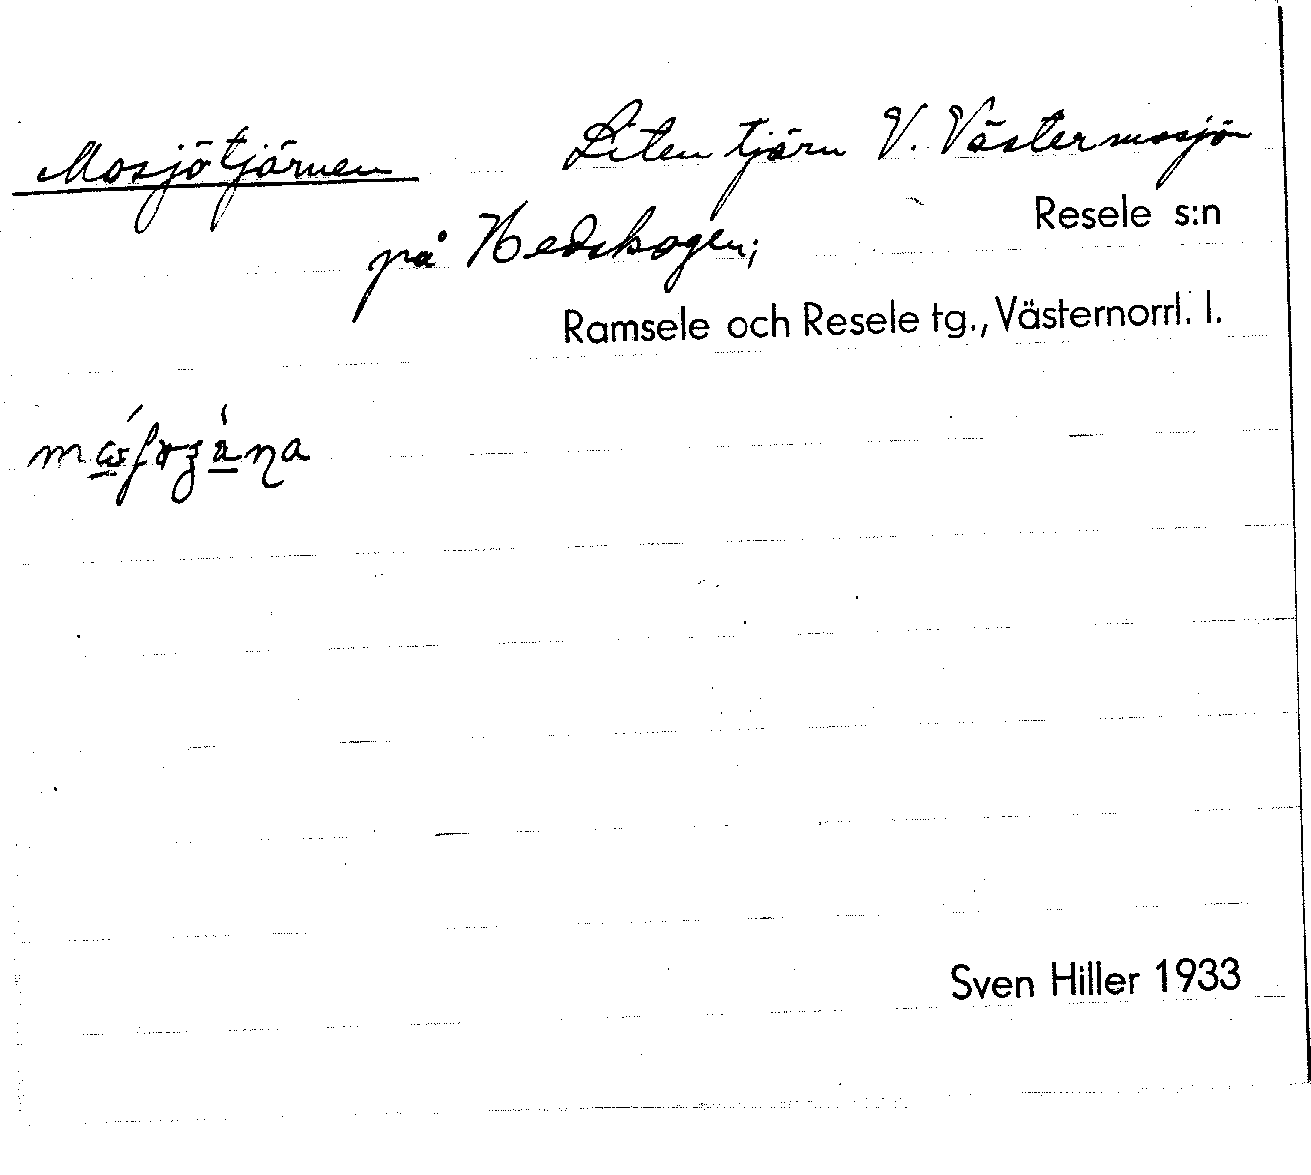 Mosjötjärnen Liten tjärn V. Västermosjön
Resele s:n
på Hedskogen;
Ramsele och Resele tg., Västernorrl. l.
Sven Hiller 1933